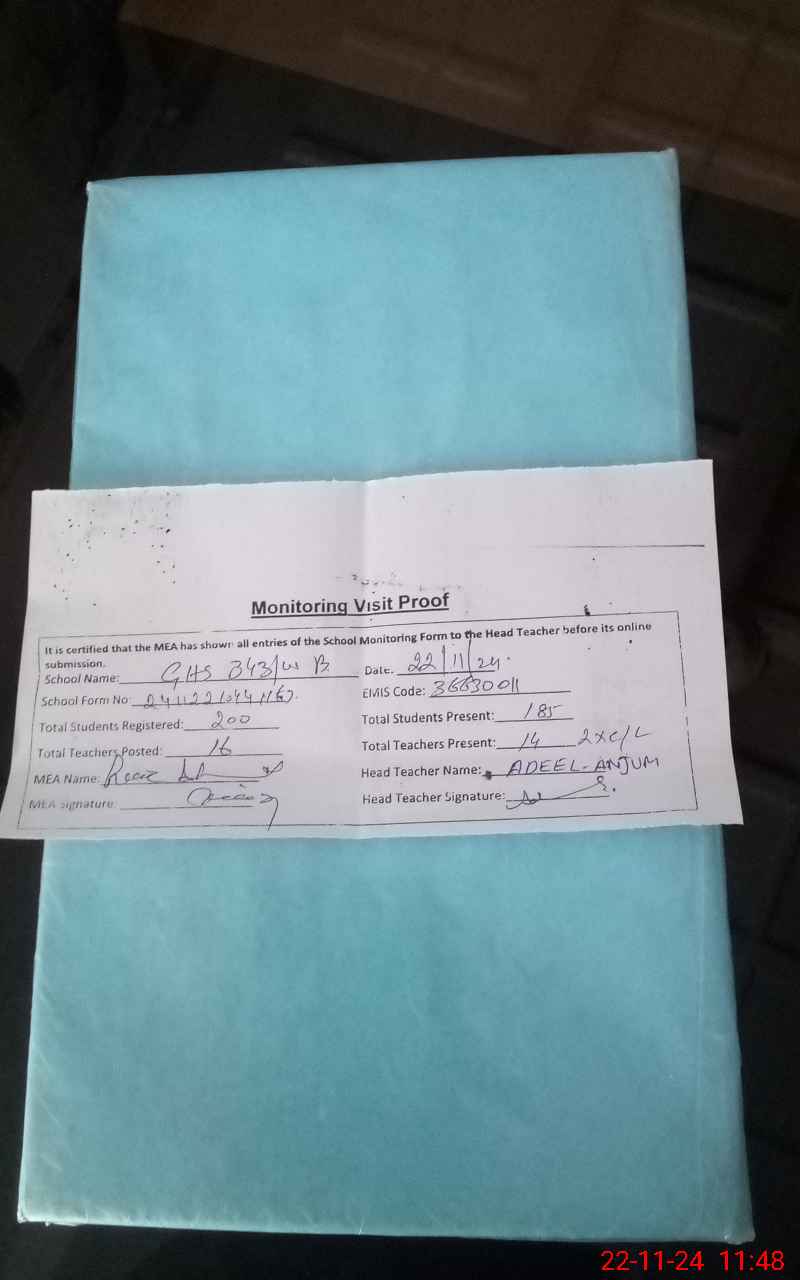 Monitoring Visit Proof
It is certified that the MEA has shown all entries of the School Monitoring Form to the Head Teacher before its online
submission.
School Name: GHS 343/W B Date: 22/11/24
School Form No: EMIS Code: 36630011
Total Students Registered: 200 Total Students Present: 185
Total Teachers Posted: 16 Total Teachers Present: 14 2xC/L
MEA Name: Head Teacher Name: ADEEL-ANJUM
MEA Signature: Head Teacher Signature:
22-11-24 11:48